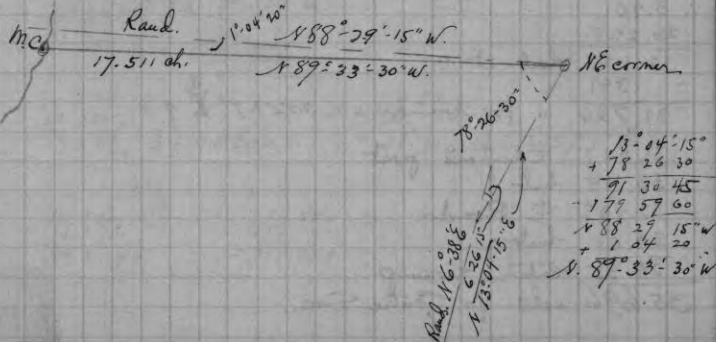 Rand. 1°-04'-20" N 88°-29'-15" W.
M.C. 17.511 ch. N 89°-33'-30" W. NE corner
78°-26-30"
Rand. N 6°-38 E
6-26-15
N 13°-04'-15" E
13°-04'-15"
+ 78 26 30
91 30 45
- 179 59 60
N 88 29 15" W
+ 1 04 20
N. 89°-33'-30" W